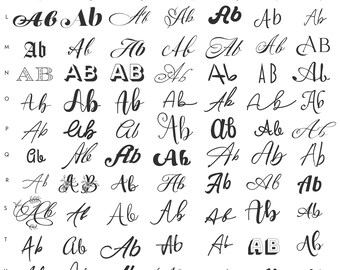 L Ab Ab Ab Ab Ab Ab Ab
M Ab Ab Ab Ab Ab Ab AB
N AB AB AB Ab Ab AB Ab
O Ab Ab Ab Ab Ab Ab Ab
P Ab Ab Ab Ab ab Ab Ab
Q Ab Ab Ab Ab Ab Ab Ab
R Ab AB Ab Ab Ab Ab Ab
S Ab Ab Ab Ab Ab Ab Ab
T Ab Ab Ab Ab Ab AB Ab